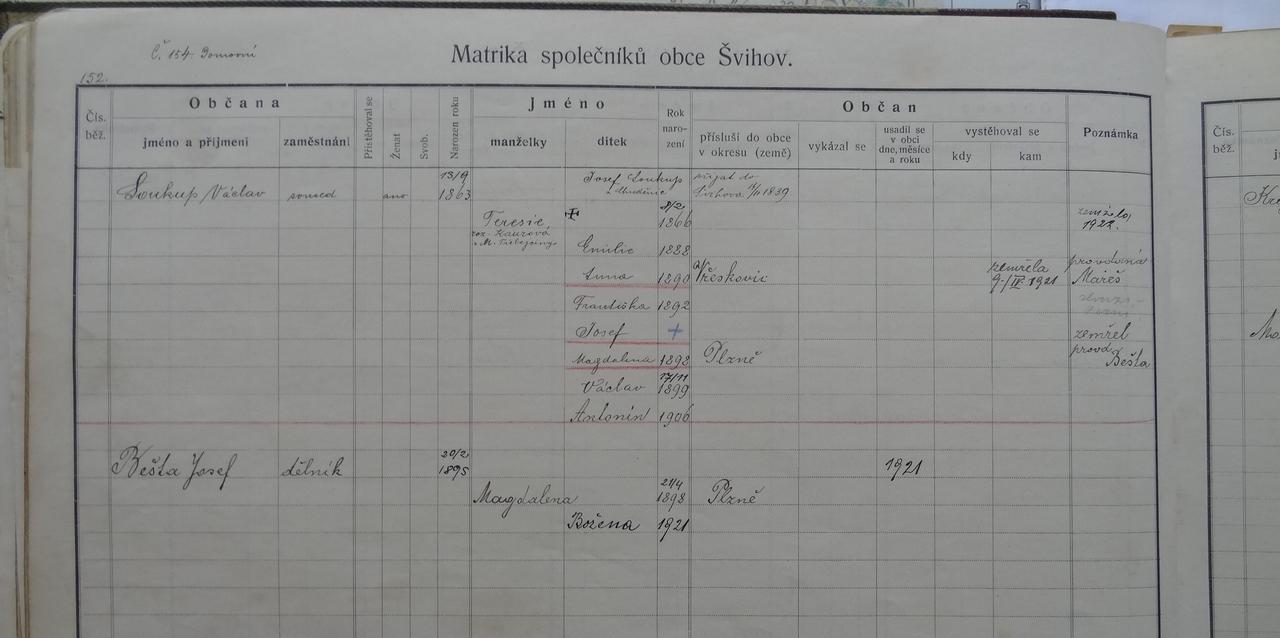 Č. 154 Domovní
Matrika společníků obce Švihov.
152.
Čís. běž.
Občana
jméno a přijmení
zaměstnání
Přistěhoval se
Ženat
Svob.
Narozen roku
Jméno
manželky
dítek
Rok naro- zení
Občan
přísluší do obce v okresu (země)
vykázal se
usadil se v obci dne, měsíce a roku
vystěhoval se
kdy
kam
Poznámka
Čís. běž.
Soukup Václav soused ano 13/9 1863 Josef Soukup přijat do
Švihova 1839
Teresie 8/2 1866 zemřela 1922.
roz.
Emilie 1888
Anna 1890 Vřeskovic zemřela 9./IV 1921 provdaná Mareš
Františka 1892
Josef + zemřel
Magdalena 1898 Plzně prov. Bešta
Václav 17/11 1899
Antonín 1906
Bešta Josef dělník 20/2 1895 1921
Magdalena 21/4 1898 Plzně
Božena 1921